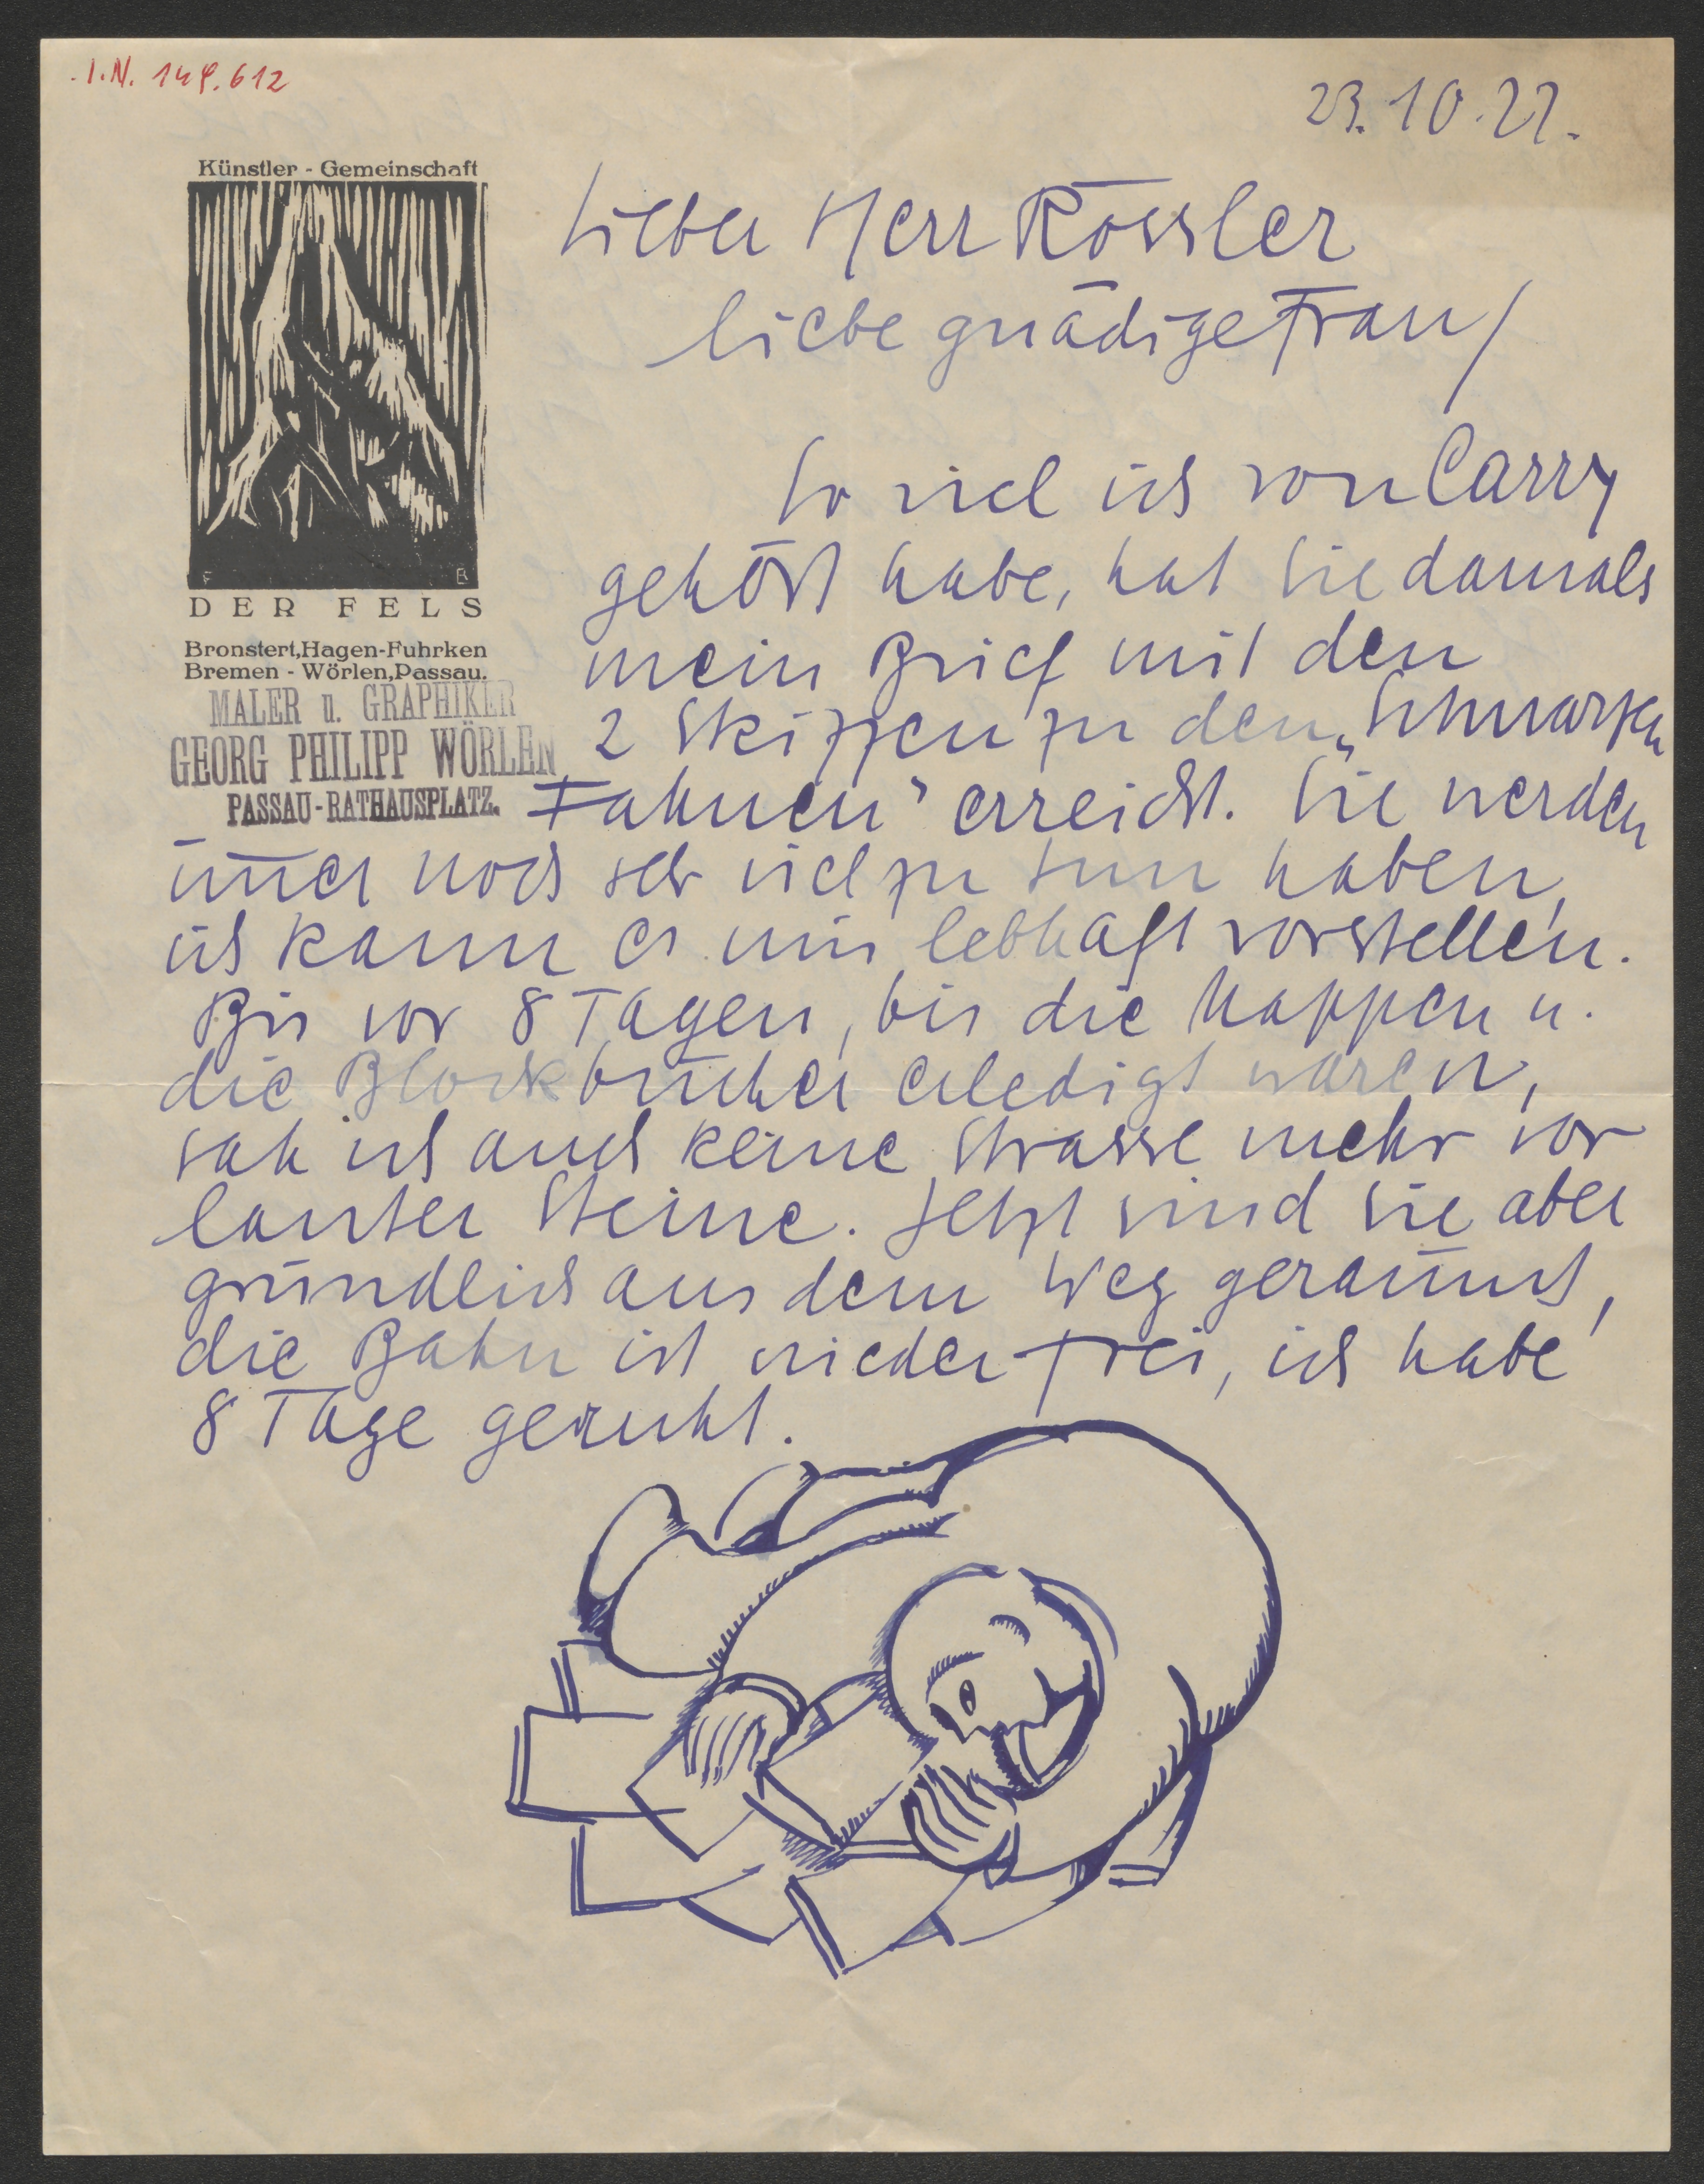 I.N. 149.612
23.10.22.
Künstler - Gemeinschaft
F B
DER FELS
Bronstert,Hagen-Fuhrken
Bremen - Wörlen,Passau.
MALER u. GRAPHIKER
GEORG PHILIPP WÖRLEN
PASSAU-RATHAUSPLATZ.
Lieber Herr Rössler
liebe gnädige Frau /
So viel ich von Carry
gehört habe, hat Sie damals
mein Brief mit den
2 Skizzen zu den „Schwarzen
Fahnen" erreicht. Sie werden
im̅er noch sehr viel zu tun haben,
ich kann es mir lebhaft vorstellen.
Bis vor 8 Tagen, bis die Mappen u.
die Blockbücher erledigt waren,
sah ich auch keine Strasse mehr vor
lauter Steine. Jetzt sind sie aber
gründlich aus dem Weg geräumt,
die Bahn ist wieder frei, ich habe
8 Tage geruht.